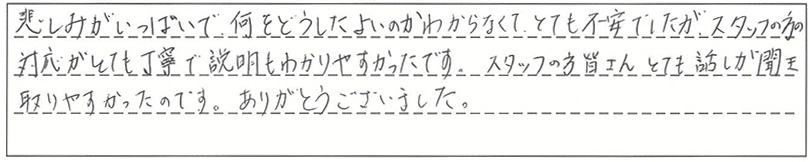 悲しみがいっぱいで、何をどうしたよいのかわからなくて、とても不安でしたが、スタッフの方の
対応がとても丁寧で説明もわかりやすかったです。スタッフの方皆さん とても 話しが聞き
取りやすかったのです。ありがとうございました。